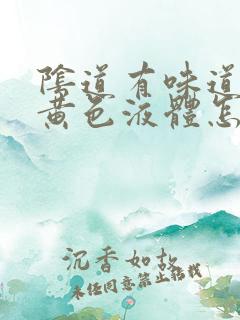 陰道有味道
黃色液體怎
沉香如故
未經同意禁止搭載